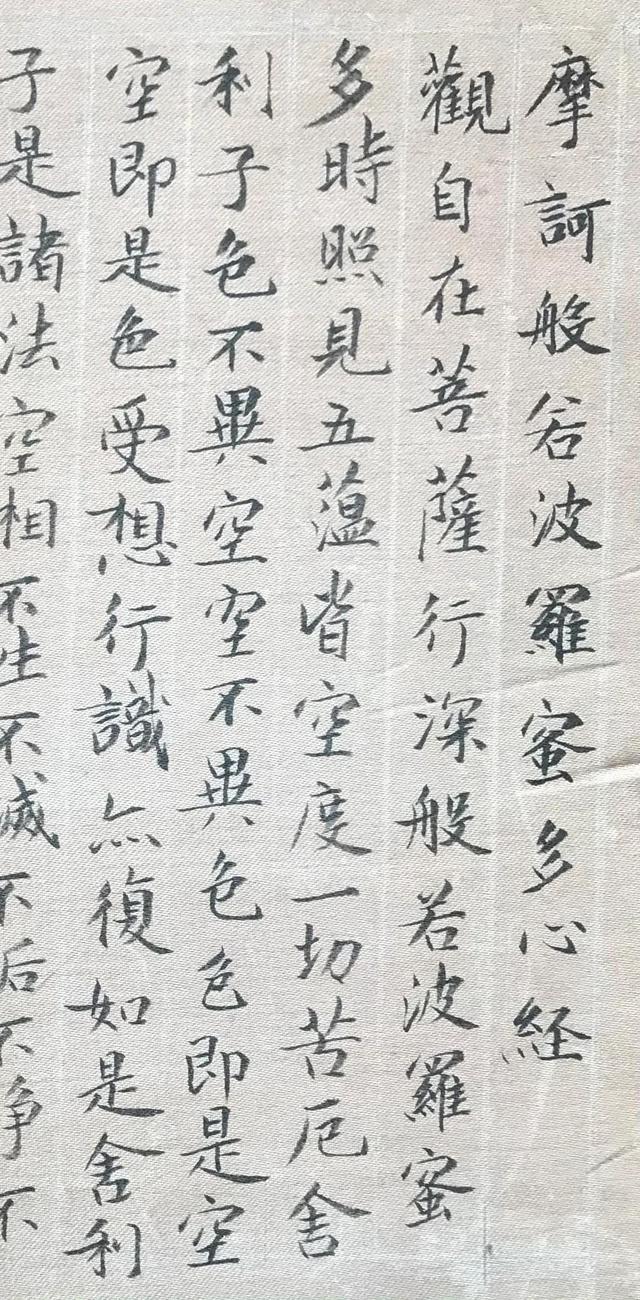 摩訶般若波羅蜜多心経
觀自在菩薩行深般若波羅蜜
多時照見五蕰皆空度一切苦厄舍
利子色不異空空不異色色即是空
空即是色受想行識亦復如是舍利
子是諸法空相不生不滅不垢不净不